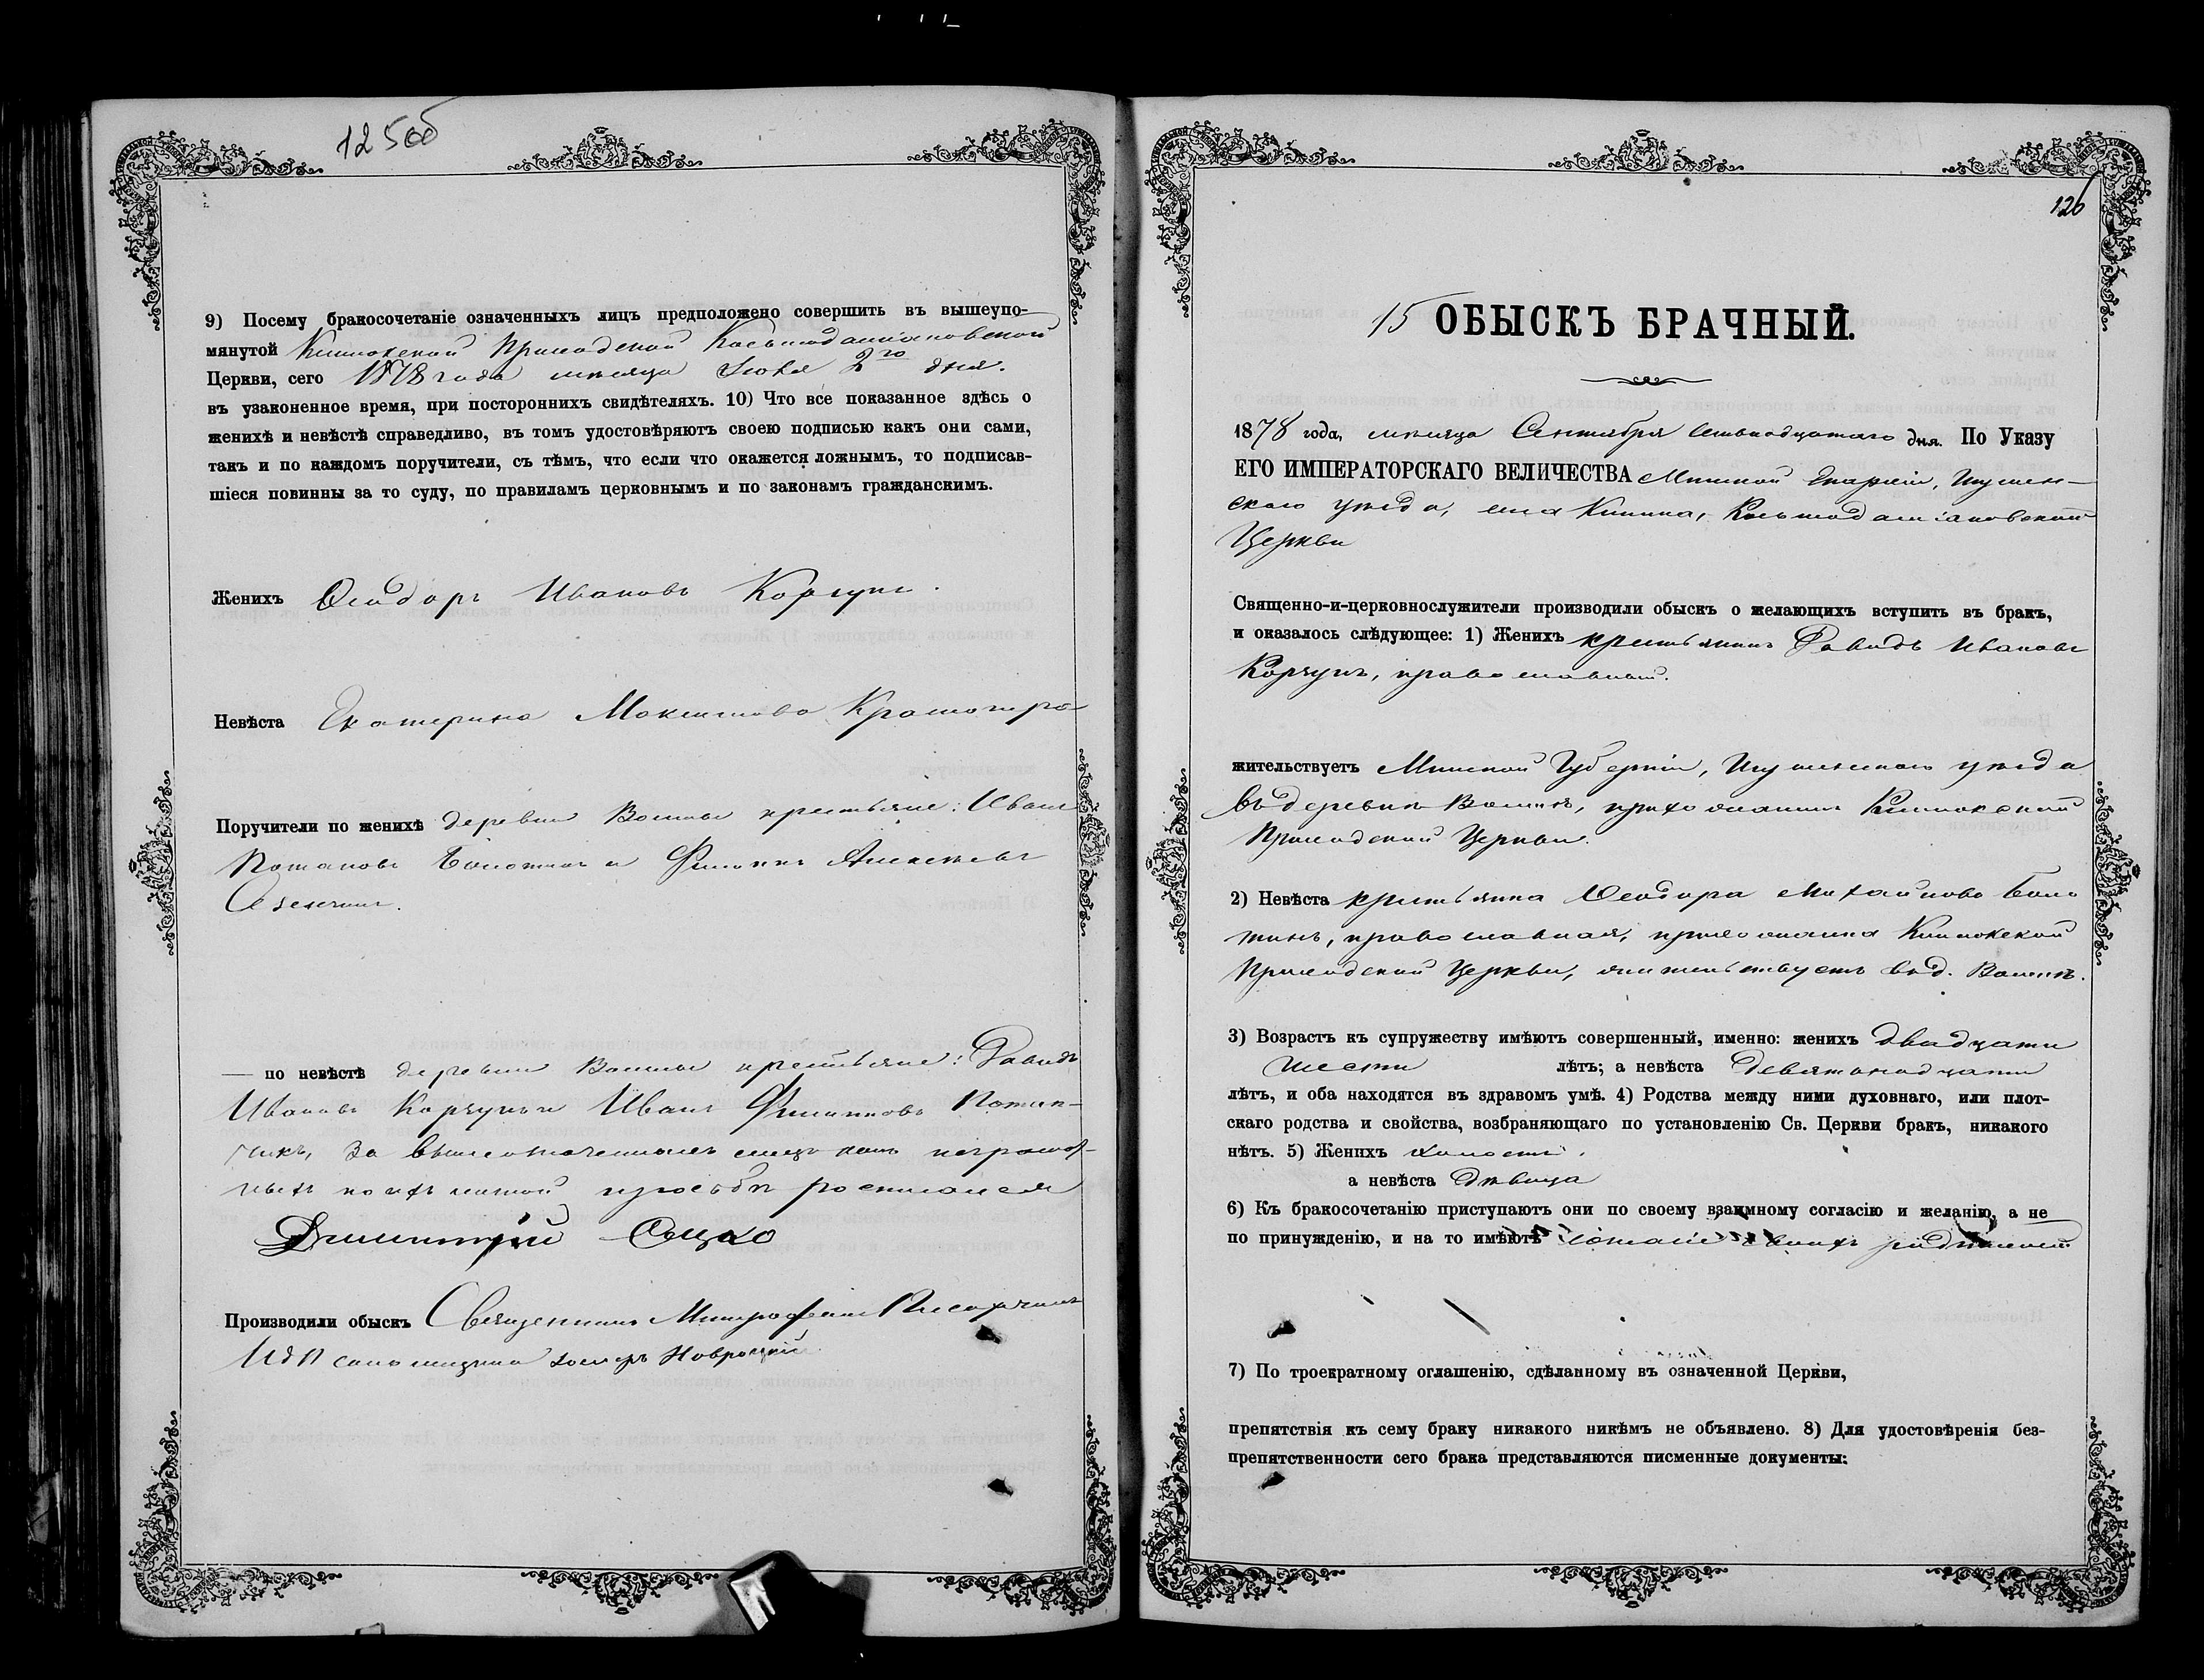 125об
9) Посему бракосочетаніе означенныхъ лицъ предположено совершить въ вышеупо-
мянутой Клинокской Приходской Косьмодаміановской
Церкви, сего 1878 года мѣсяца Іюля 2го дня.
въ узаконенное время, при постороннихъ свидѣтеляхъ. 10) Что все показанное здѣсь о
женихѣ и невѣстѣ справедливо, въ томъ удостовѣряютъ своею подписью какъ они сами,
такъ и по каждомъ поручители, съ тѣмъ, что если что окажется ложнымъ, то подписав-
шіеся повинны за то суду, по правиламъ церковнымъ и по законамъ гражданскимъ.
Женихъ Ѳеодоръ Ивановъ Корзунъ.
Невѣста Екатерина Максимова
Поручители по женихѣ деревни крестьяне: Иванъ
Потаповъ Болотинъ и Филиппъ Алексѣевъ
— по невѣстѣ деревни крестьяне: Давидъ
Ивановъ Корзунъ и Иванъ Филипповъ
за неграмот-
ныхъ по ихъ личной просьбѣ росписался
Димитрій Сацко
Производили обыскъ Священникъ Митрофанъ
И д П
126
15 ОБЫСКЪ БРАЧНЫЙ.
1878 года, мѣсяца Сентября семнадцатаго дня. По Указу
ЕГО ИМПЕРАТОРСКАГО ВЕЛИЧЕСТВА Минской Епархіи, Игумен-
скаго уѣзда, села Клинка, Косьмодаміановской
Церкви
Священно-и-церковнослужители производили обыскъ о желающихъ вступить въ бракъ,
и оказалось слѣдующее: 1) Женихъ крестьянинъ Давидъ Ивановъ
Корзунъ, православный.
жительствуетъ Минской Губерніи, Игуменскаго уѣзда
въ деревнѣ прихожанинъ Клинокской
Приходской Церкви.
2) Невѣста крестьянка Ѳеодора Михайлова Боло
тинъ, православная, прихожанка Клинокской
Приходской Церкви, жительствуетъ въ д.
3) Возрастъ къ супружеству имѣютъ совершенный, именно: женихъ двадцати
шести лѣтъ; а невѣста девятнадцати
лѣтъ, и оба находятся въ здравомъ умѣ. 4) Родства между ними духовнаго, или плот-
скаго родства и свойства, возбраняющаго по установленію Св. Церкви бракъ, никакого
нѣтъ. 5) Женихъ холостъ,
а невѣста дѣвица
6) Къ бракосочетанію приступаютъ они по своему взаимному согласію и желанію, а не
по принужденію, и на то имѣютъ согласіе своихъ родителей
7) По троекратному оглашенію, сдѣланному въ означенной Церкви,
препятствія къ сему браку никакого никѣмъ не объявлено. 8) Для удостовѣренія без-
препятственности сего брака представляются писменные документы: